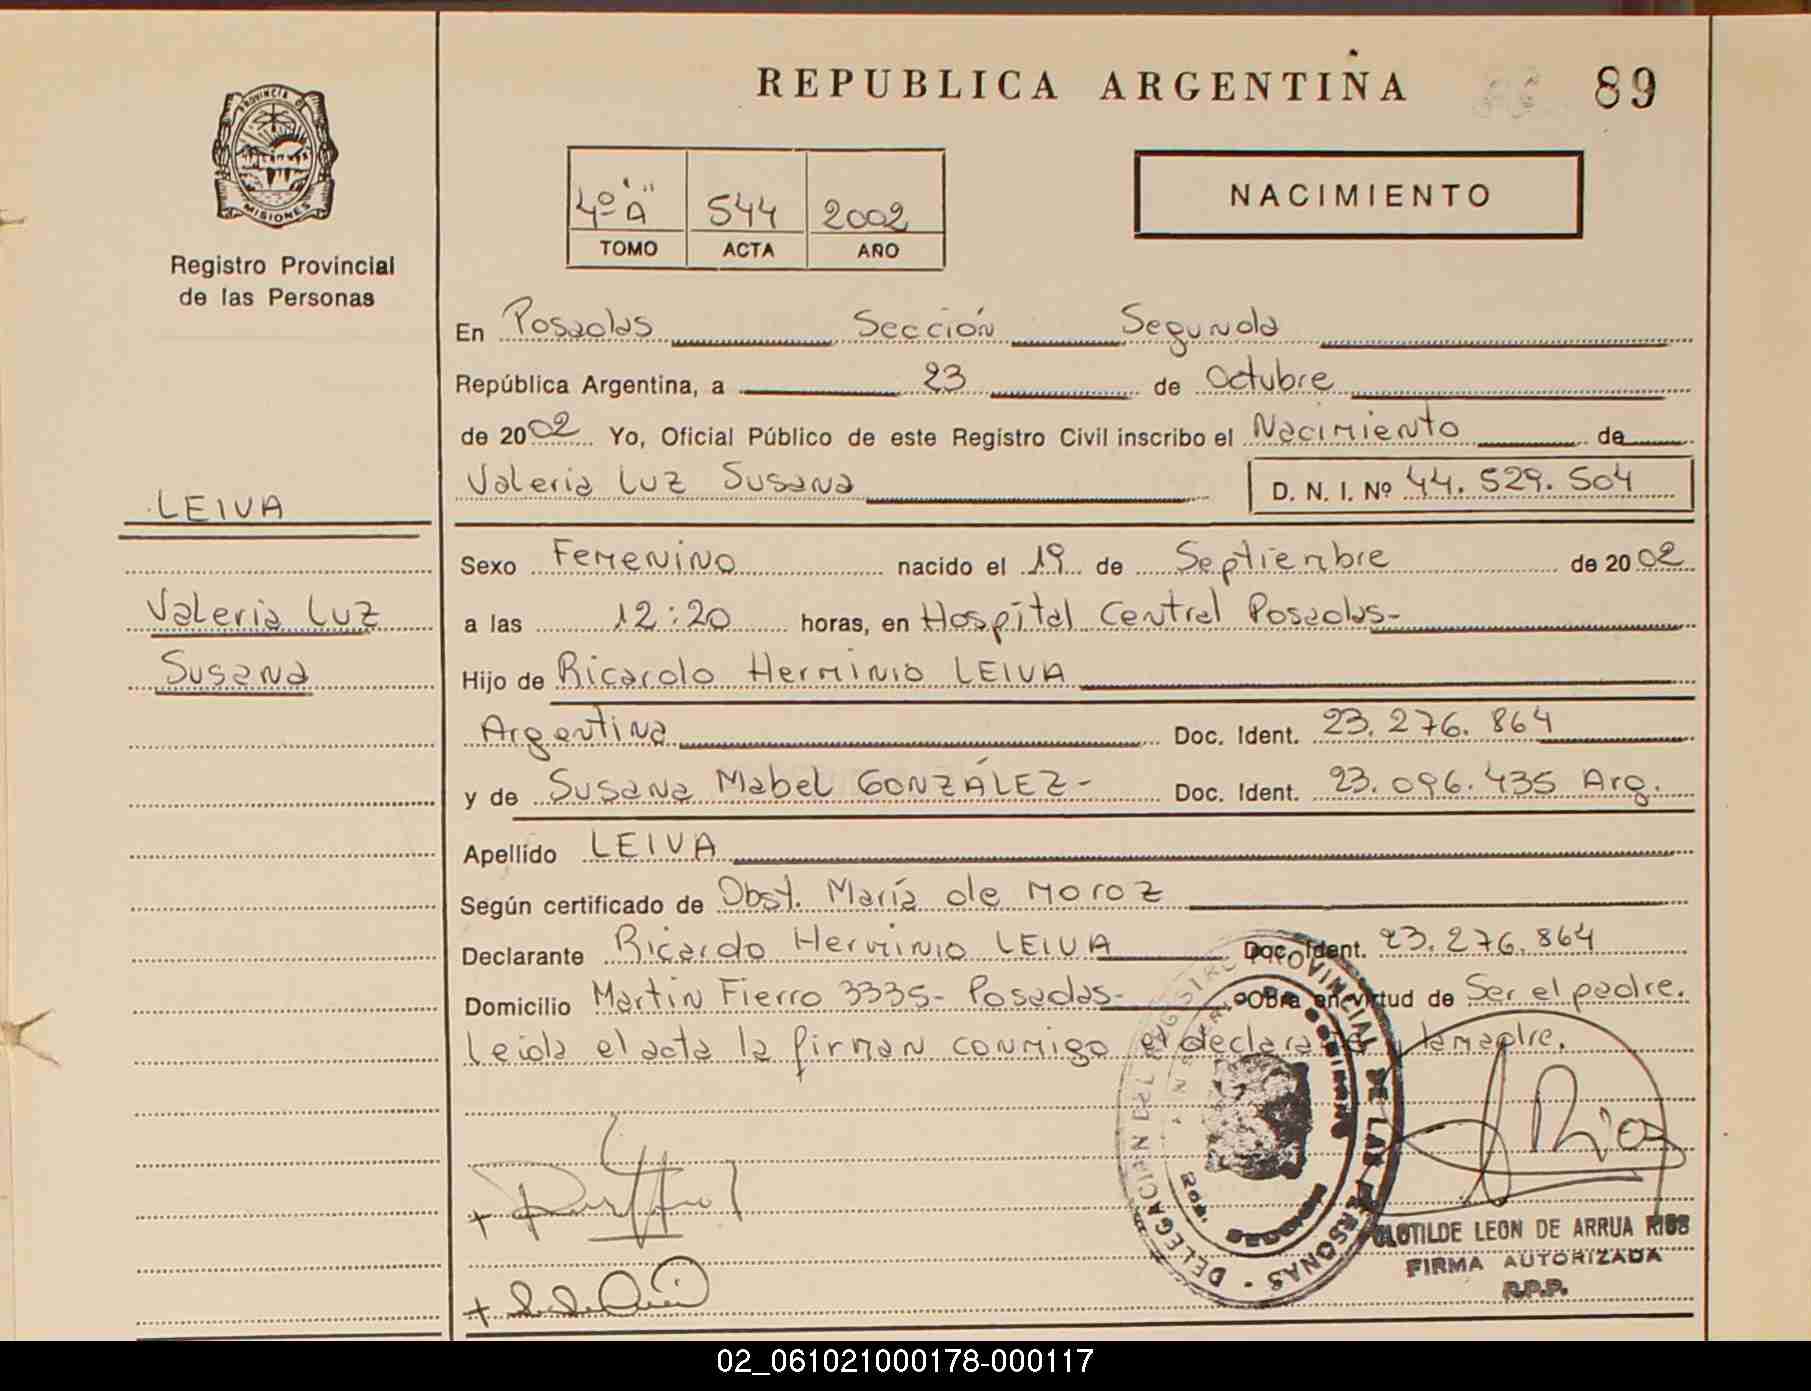 REPUBLICA ARGENTINA 89
PROVINCIA DE
MISIONES
Registro Provincial
de las Personas
4º "A" 544 2002
TOMO ACTA AÑO
NACIMIENTO
En Posadas Sección Segunda
República Argentina, a 23 de Octubre
de 2002 Yo, Oficial Público de este Registro Civil inscribo el Nacimiento de
Valeria Luz Susana D. N. I. Nº 44.529.504
LEIVA
Valeria Luz
Susana
Sexo Femenino nacido el 19 de Septiembre de 2002
a las 12:20 horas, en Hospital Central Posadas-
Hijo de Ricardo Herminio LEIVA
Argentina Doc. Ident. 23.276.864
y de Susana Mabel GONZÁLEZ- Doc. Ident. 23.096.435 Arg.
Apellido LEIVA
Según certificado de Obst. María de Moroz
Declarante Ricardo Herminio LEIVA Doc. Ident. 23.276.864
Domicilio Martin Fierro 3335- Posadas- Obra en virtud de Ser el padre.
Leida el acta la firman conmigo el declarante y la madre.
DELEGACION DEL REGISTRO PROVINCIAL DE LAS PERSONAS
Rios
CLOTILDE LEON DE ARRUA RIOS
FIRMA AUTORIZADA
R.P.P.
02_061021000178-000117